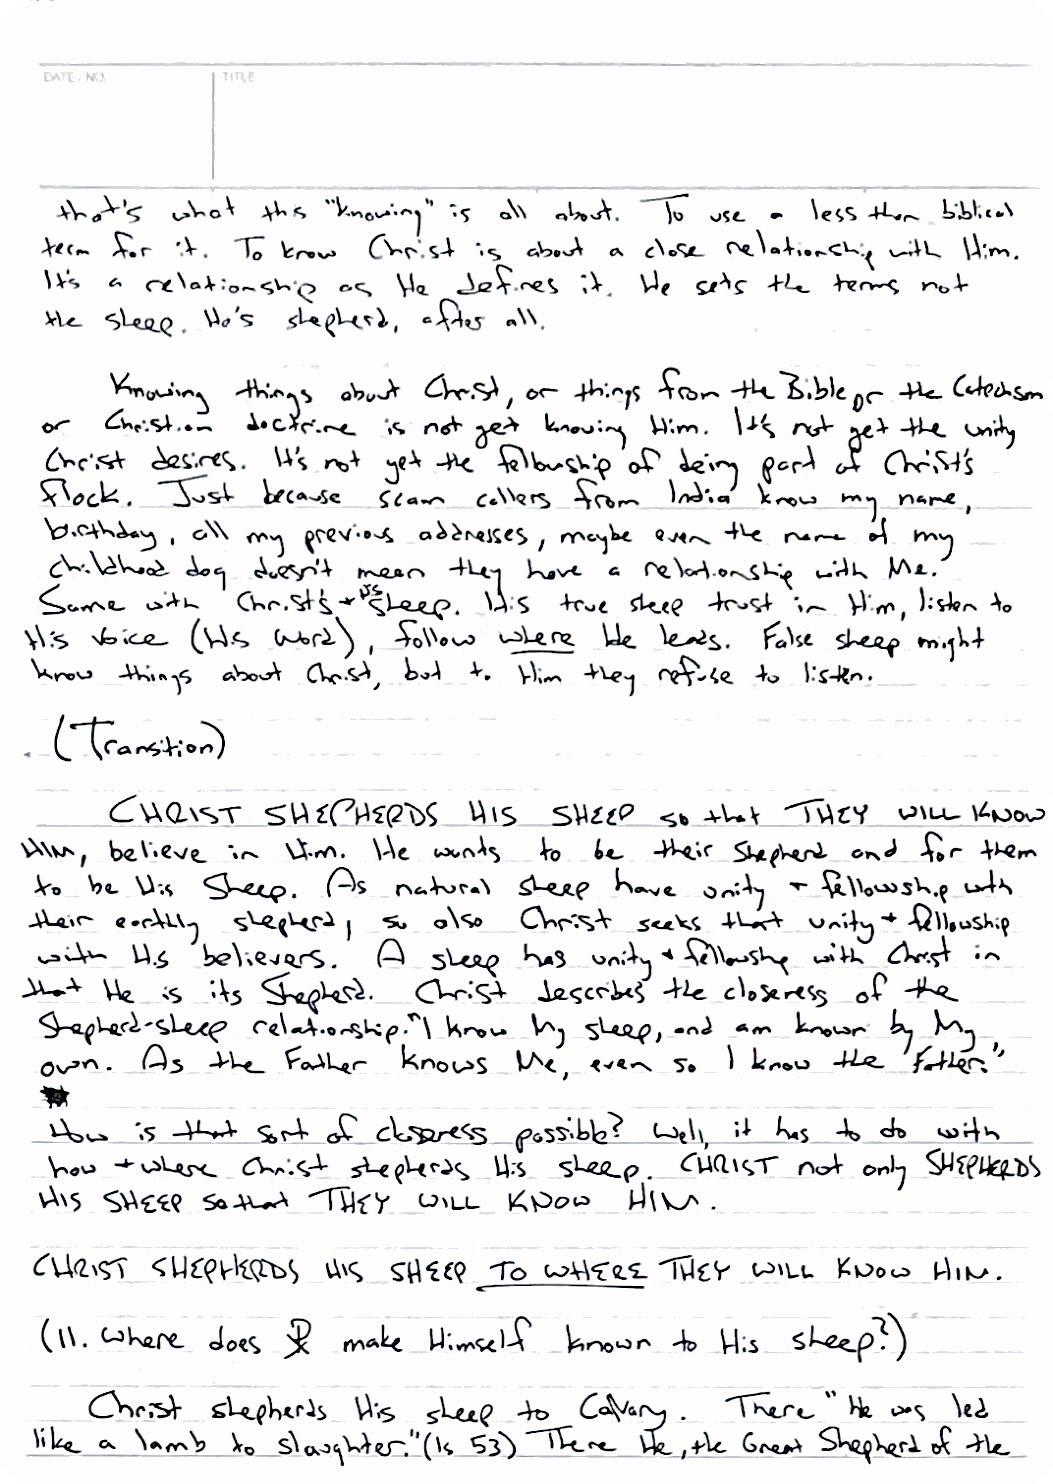 DATE . NO.
TITLE
that's what this "knowing" is all about. To use a less than biblical
term for it. To know Christ is about a close relationship with Him.
It's a relationship as He defines it. He sets the terms not
the sheep. He's shepherd, after all.
Knowing things about Christ, or things from the Bible or the Catechism
or Christian doctrine is not yet knowing Him. It's not yet the unity
Christ desires. It's not yet the fellowship of being part of Christ's
flock. Just because scam callers from India know my name,
birthday, all my previous addresses, maybe even the name of my
childhood dog doesn't mean they have a relationship with Me.
Same with Christ's + His sheep. His true sheep trust in Him, listen to
His voice (His Word), follow where He leads. False sheep might
know things about Christ, but to Him they refuse to listen.
(Transition)
CHRIST SHEPHERDS HIS SHEEP so that THEY WILL KNOW
HIM, believe in Him. He wants to be their Shepherd and for them
to be His Sheep. As natural sheep have unity + fellowship with
their earthly shepherd, so also Christ seeks that unity + fellowship
with His believers. A sheep has unity + fellowship with Christ in
that He is its Shepherd. Christ describes the closeness of the
Shepherd-sheep relationship. "I know My sheep, and am known by My
own. As the Father knows Me, even so I know the Father."
How is that sort of closeness possible? Well, it has to do with
how + where Christ shepherds His sheep. CHRIST not only SHEPHERDS
HIS SHEEP so that THEY WILL KNOW HIM.
CHRIST SHEPHERDS HIS SHEEP TO WHERE THEY WILL KNOW HIM.
(II. Where does ☧ make Himself known to His sheep?)
Christ shepherds His sheep to Calvary. There "He was led
like a lamb to slaughter." (Is 53) There He, the Great Shepherd of the